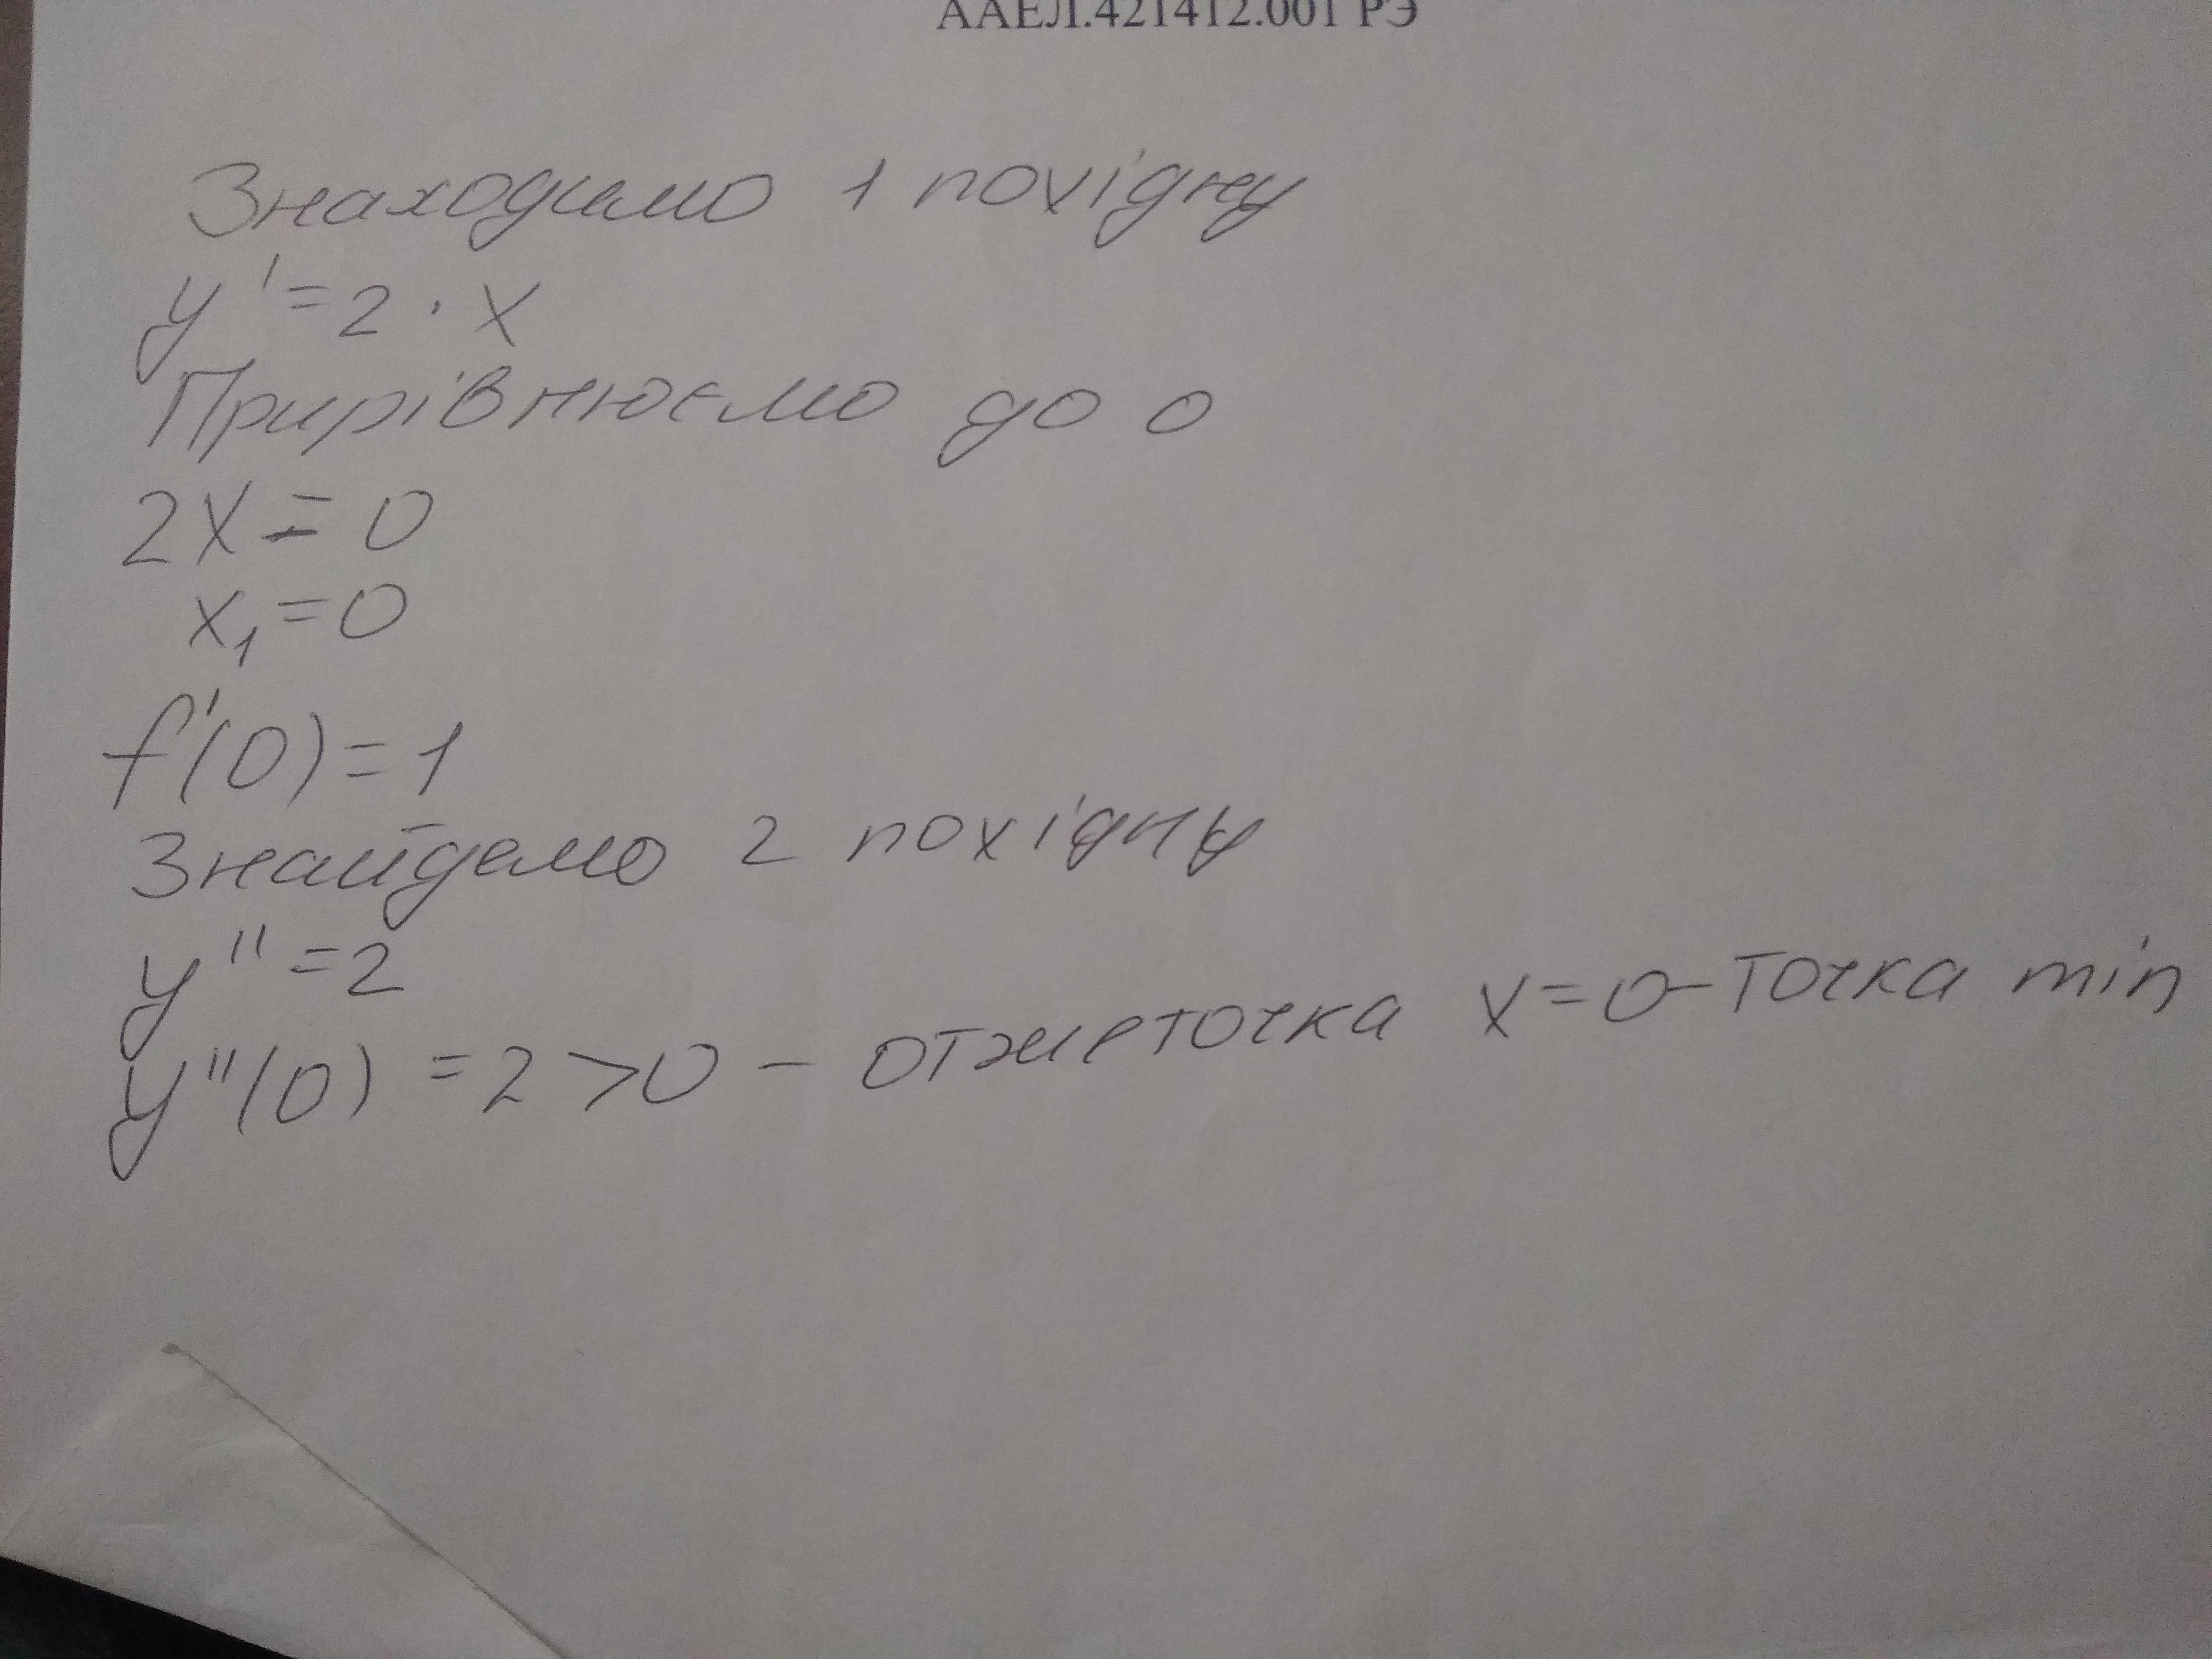 ААЕЛ.421412.001 РЭ
Знаходимо 1 похідну
y' = 2 · x
Прирівнюємо до 0
2x = 0
x₁ = 0
f'(0) = 1
Знайдемо 2 похідну
y'' = 2
y''(0) = 2 > 0 - отже точка x = 0 - точка min